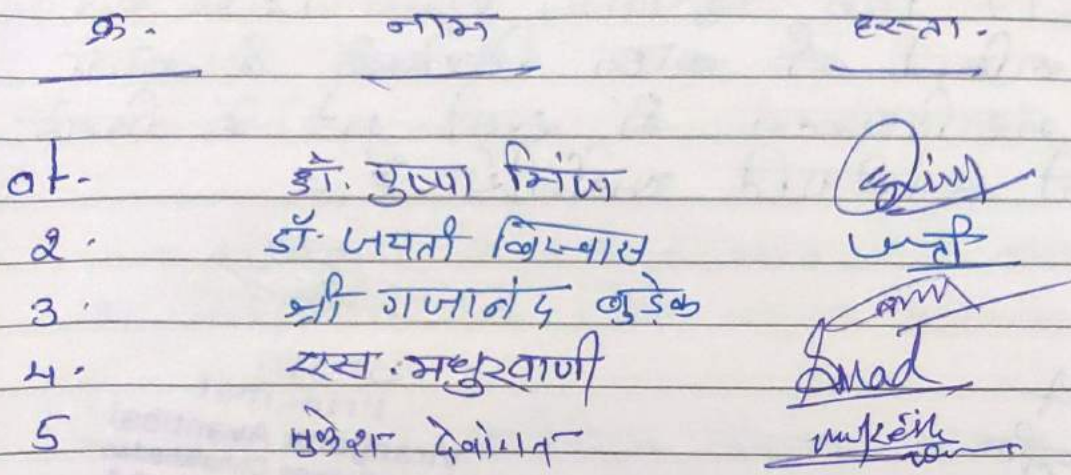 क्र. नाम हस्ता.
01. डॉ. पुष्पा मिंज
2. डॉ. जयती बिस्वास
3. श्री गजानंद बुड़ेक
4. एस. मधुरवाणी Smad
5 मुकेश देवांगन mukesh